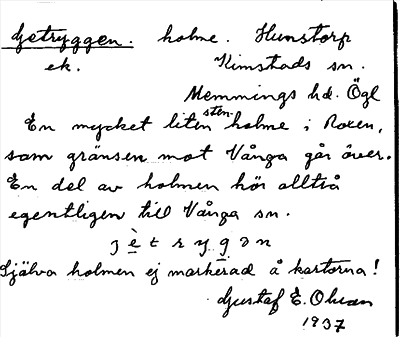 Getryggen. holme. Hunstorp
ek. Kimstads sn.
Memmings hd. Ögl
En mycket liten sten holme i Roxen,
som gränsen mot Vånga går över.
En del av holmen hör alltså
egentligen till Vånga sn.
j è t r y g ə n
Själva holmen ej markerad å kartorna!
Gustaf E. Olsson
1937